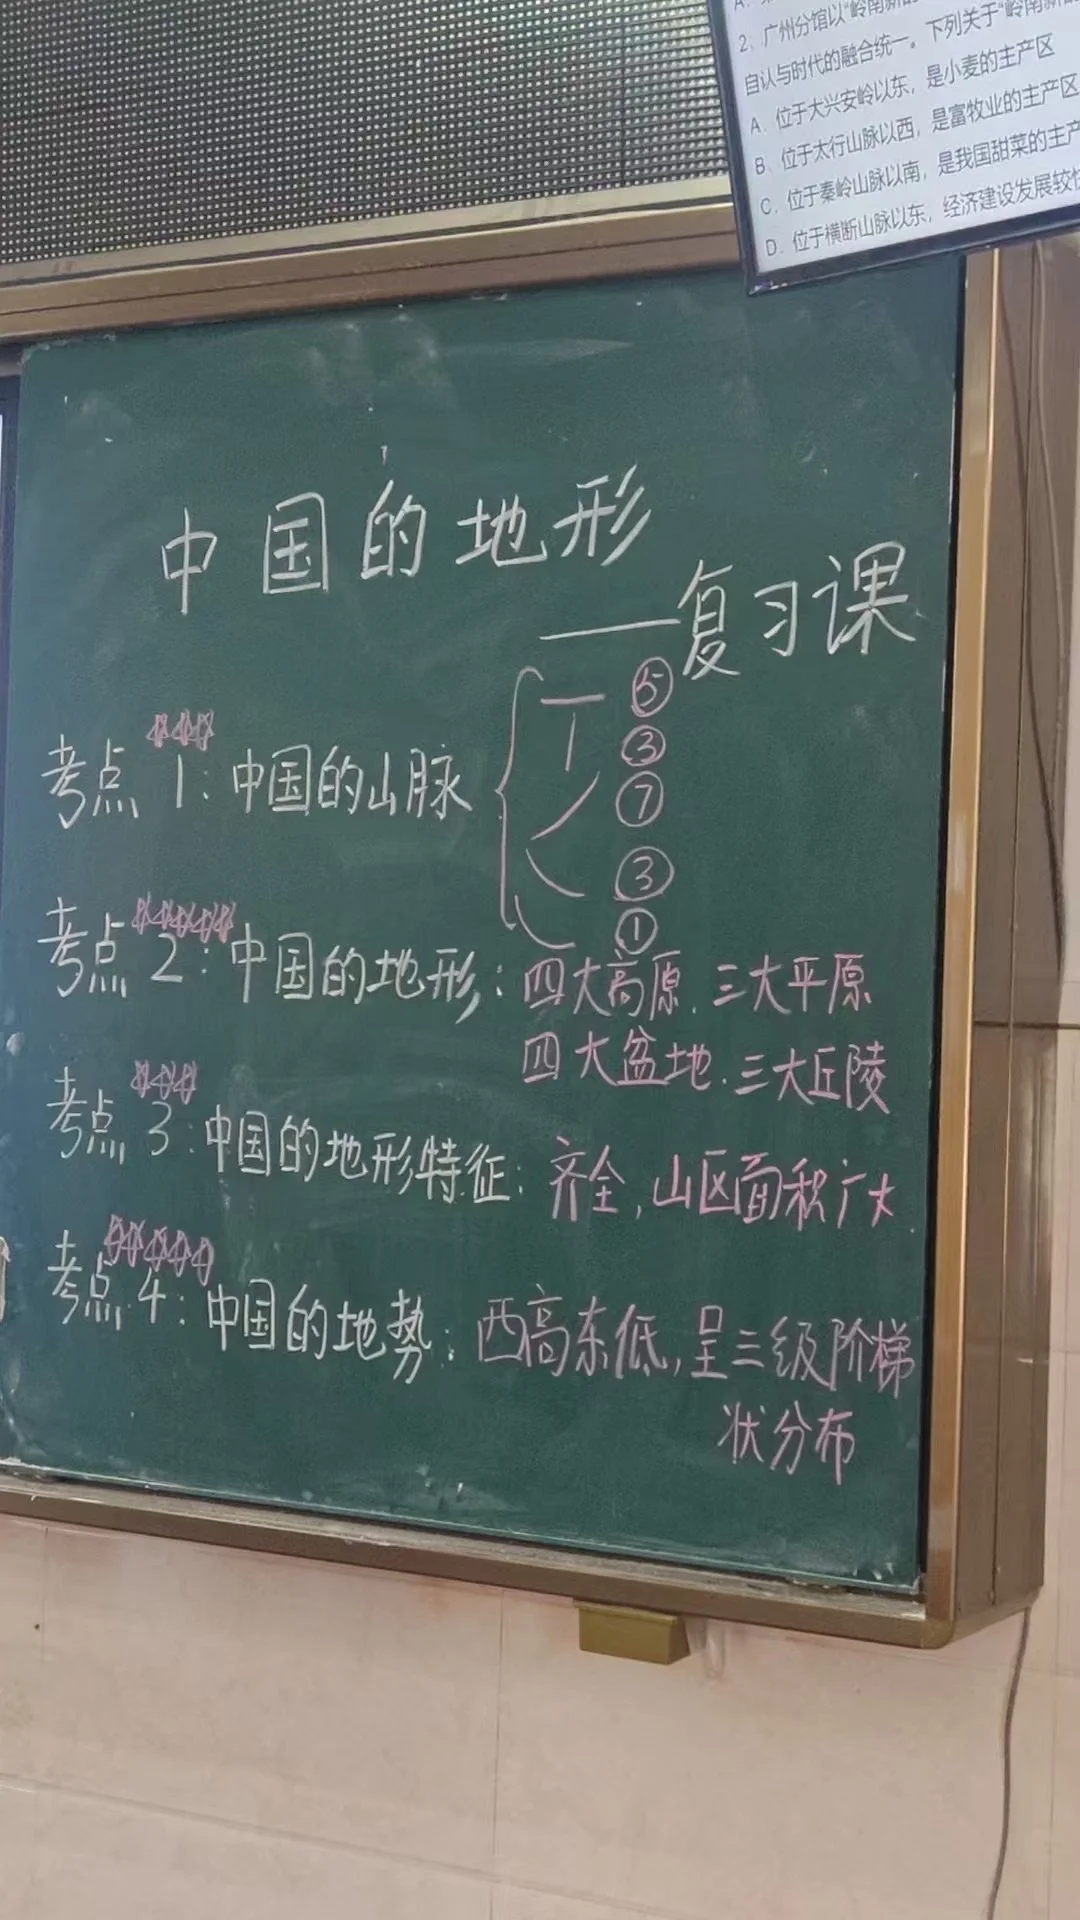 2、广州分馆以“岭南新
自认与时代的融合统一。下列关于“岭南新
A. 位于大兴安岭以东，是小麦的主产区
B. 位于太行山脉以西，是畜牧业的主产区
C. 位于秦岭山脉以南，是我国甜菜的主产
D. 位于横断山脉以东，经济建设发展较
中国的地形
——复习课
考点1：中国的山脉
⑤
③
⑦
③
①
考点2：中国的地形：四大高原、三大平原
四大盆地、三大丘陵
考点3：中国的地形特征：齐全，山区面积广大
考点4：中国的地势：西高东低，呈三级阶梯
状分布